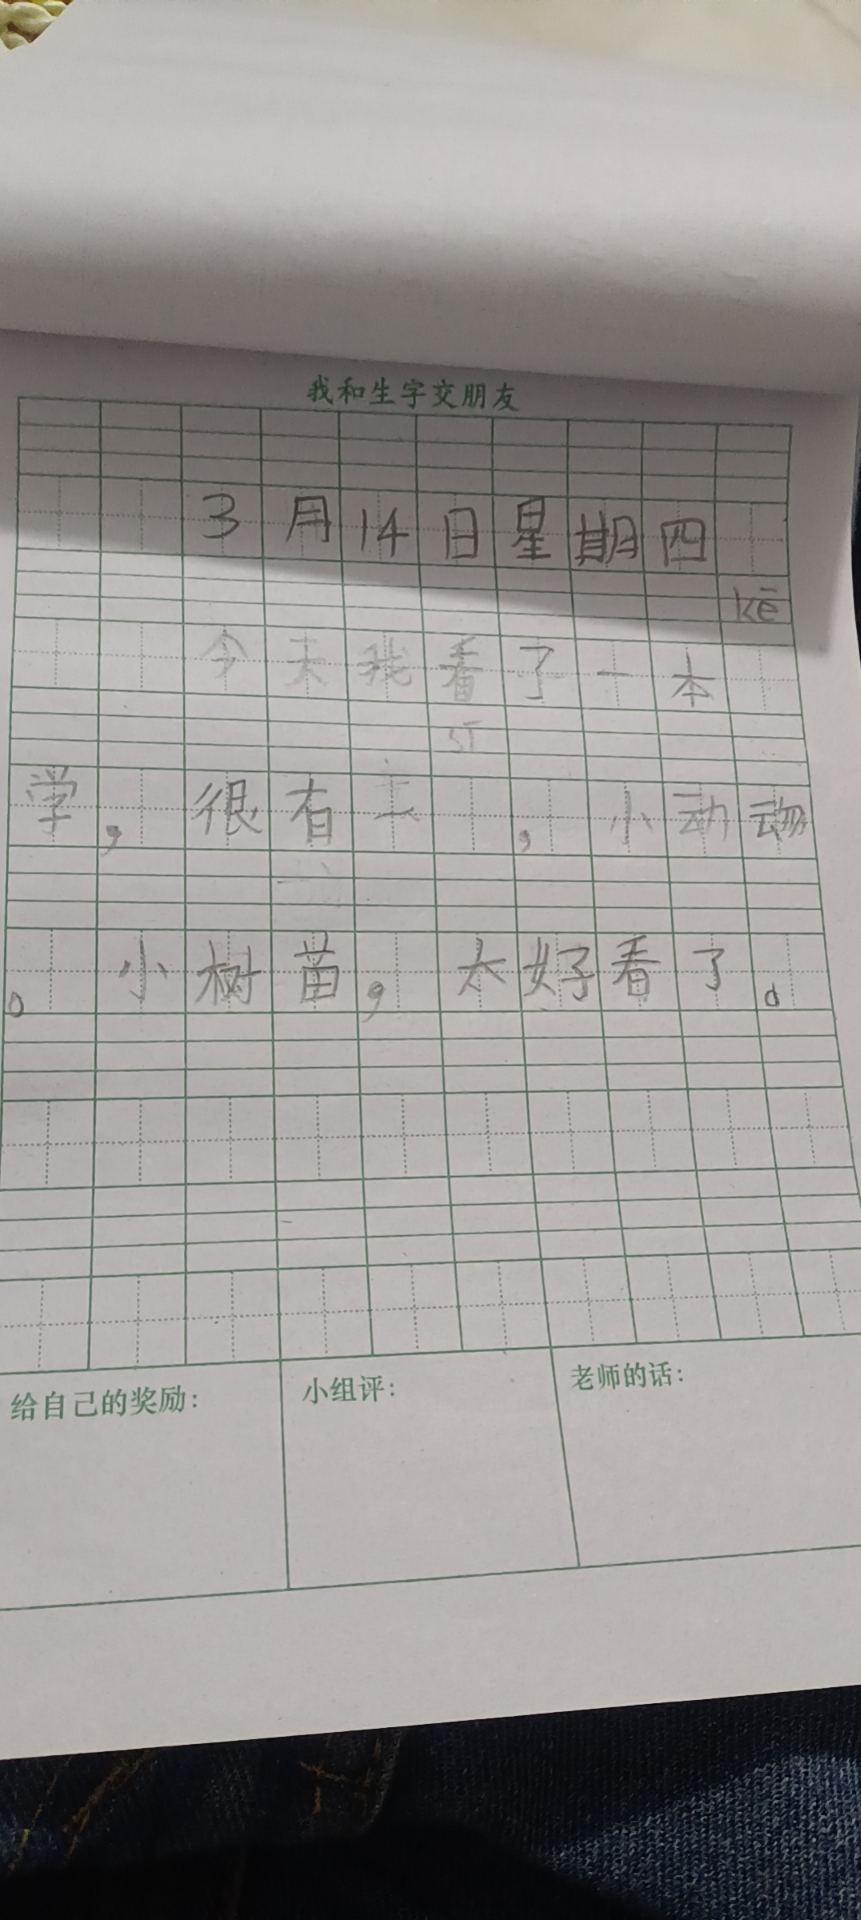 我和生字交朋友
3月14日星期四
kē
今天我看了一本
学，很有 ，小动物
。小树苗，太好看了。
给自己的奖励：
小组评：
老师的话：